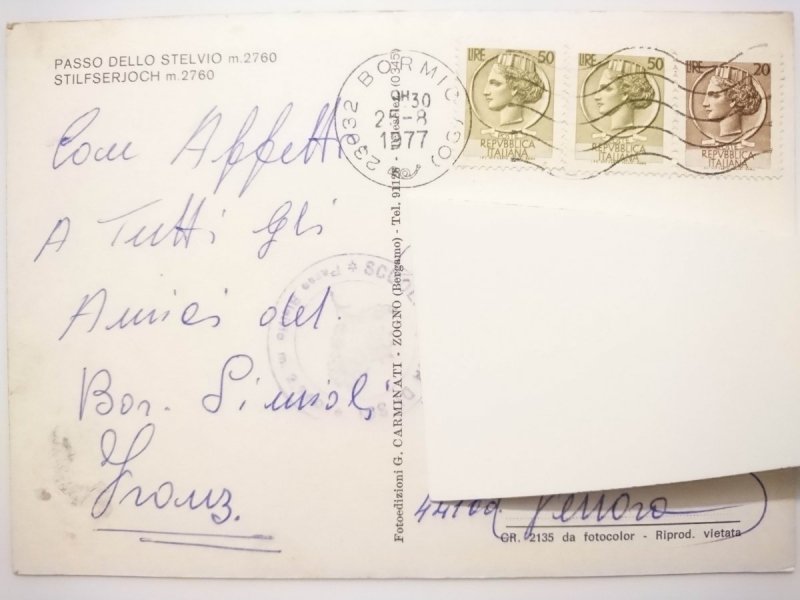 PASSO DELLO STELVIO m.2760
STILFSERJOCH m.2760
Con Affetto
A Tutti Gli
Amici del.
Bar.
Franz.
23032 BORMIO (SO)
H
30
2 -8
1977
LIRE 50
POSTE
REPVBBLICA
ITALIANA
LIRE 50
REPVBBLICA
ITALIANA
LIRE 20
REPVBBLICA
ITALIANA
Passo
Fotoedizioni G. CARMINATI - ZOGNO (Bergamo) - Tel. 91128 - (0345)
44100 Ferrara
CR. 2135 da fotocolor - Riprod. vietata